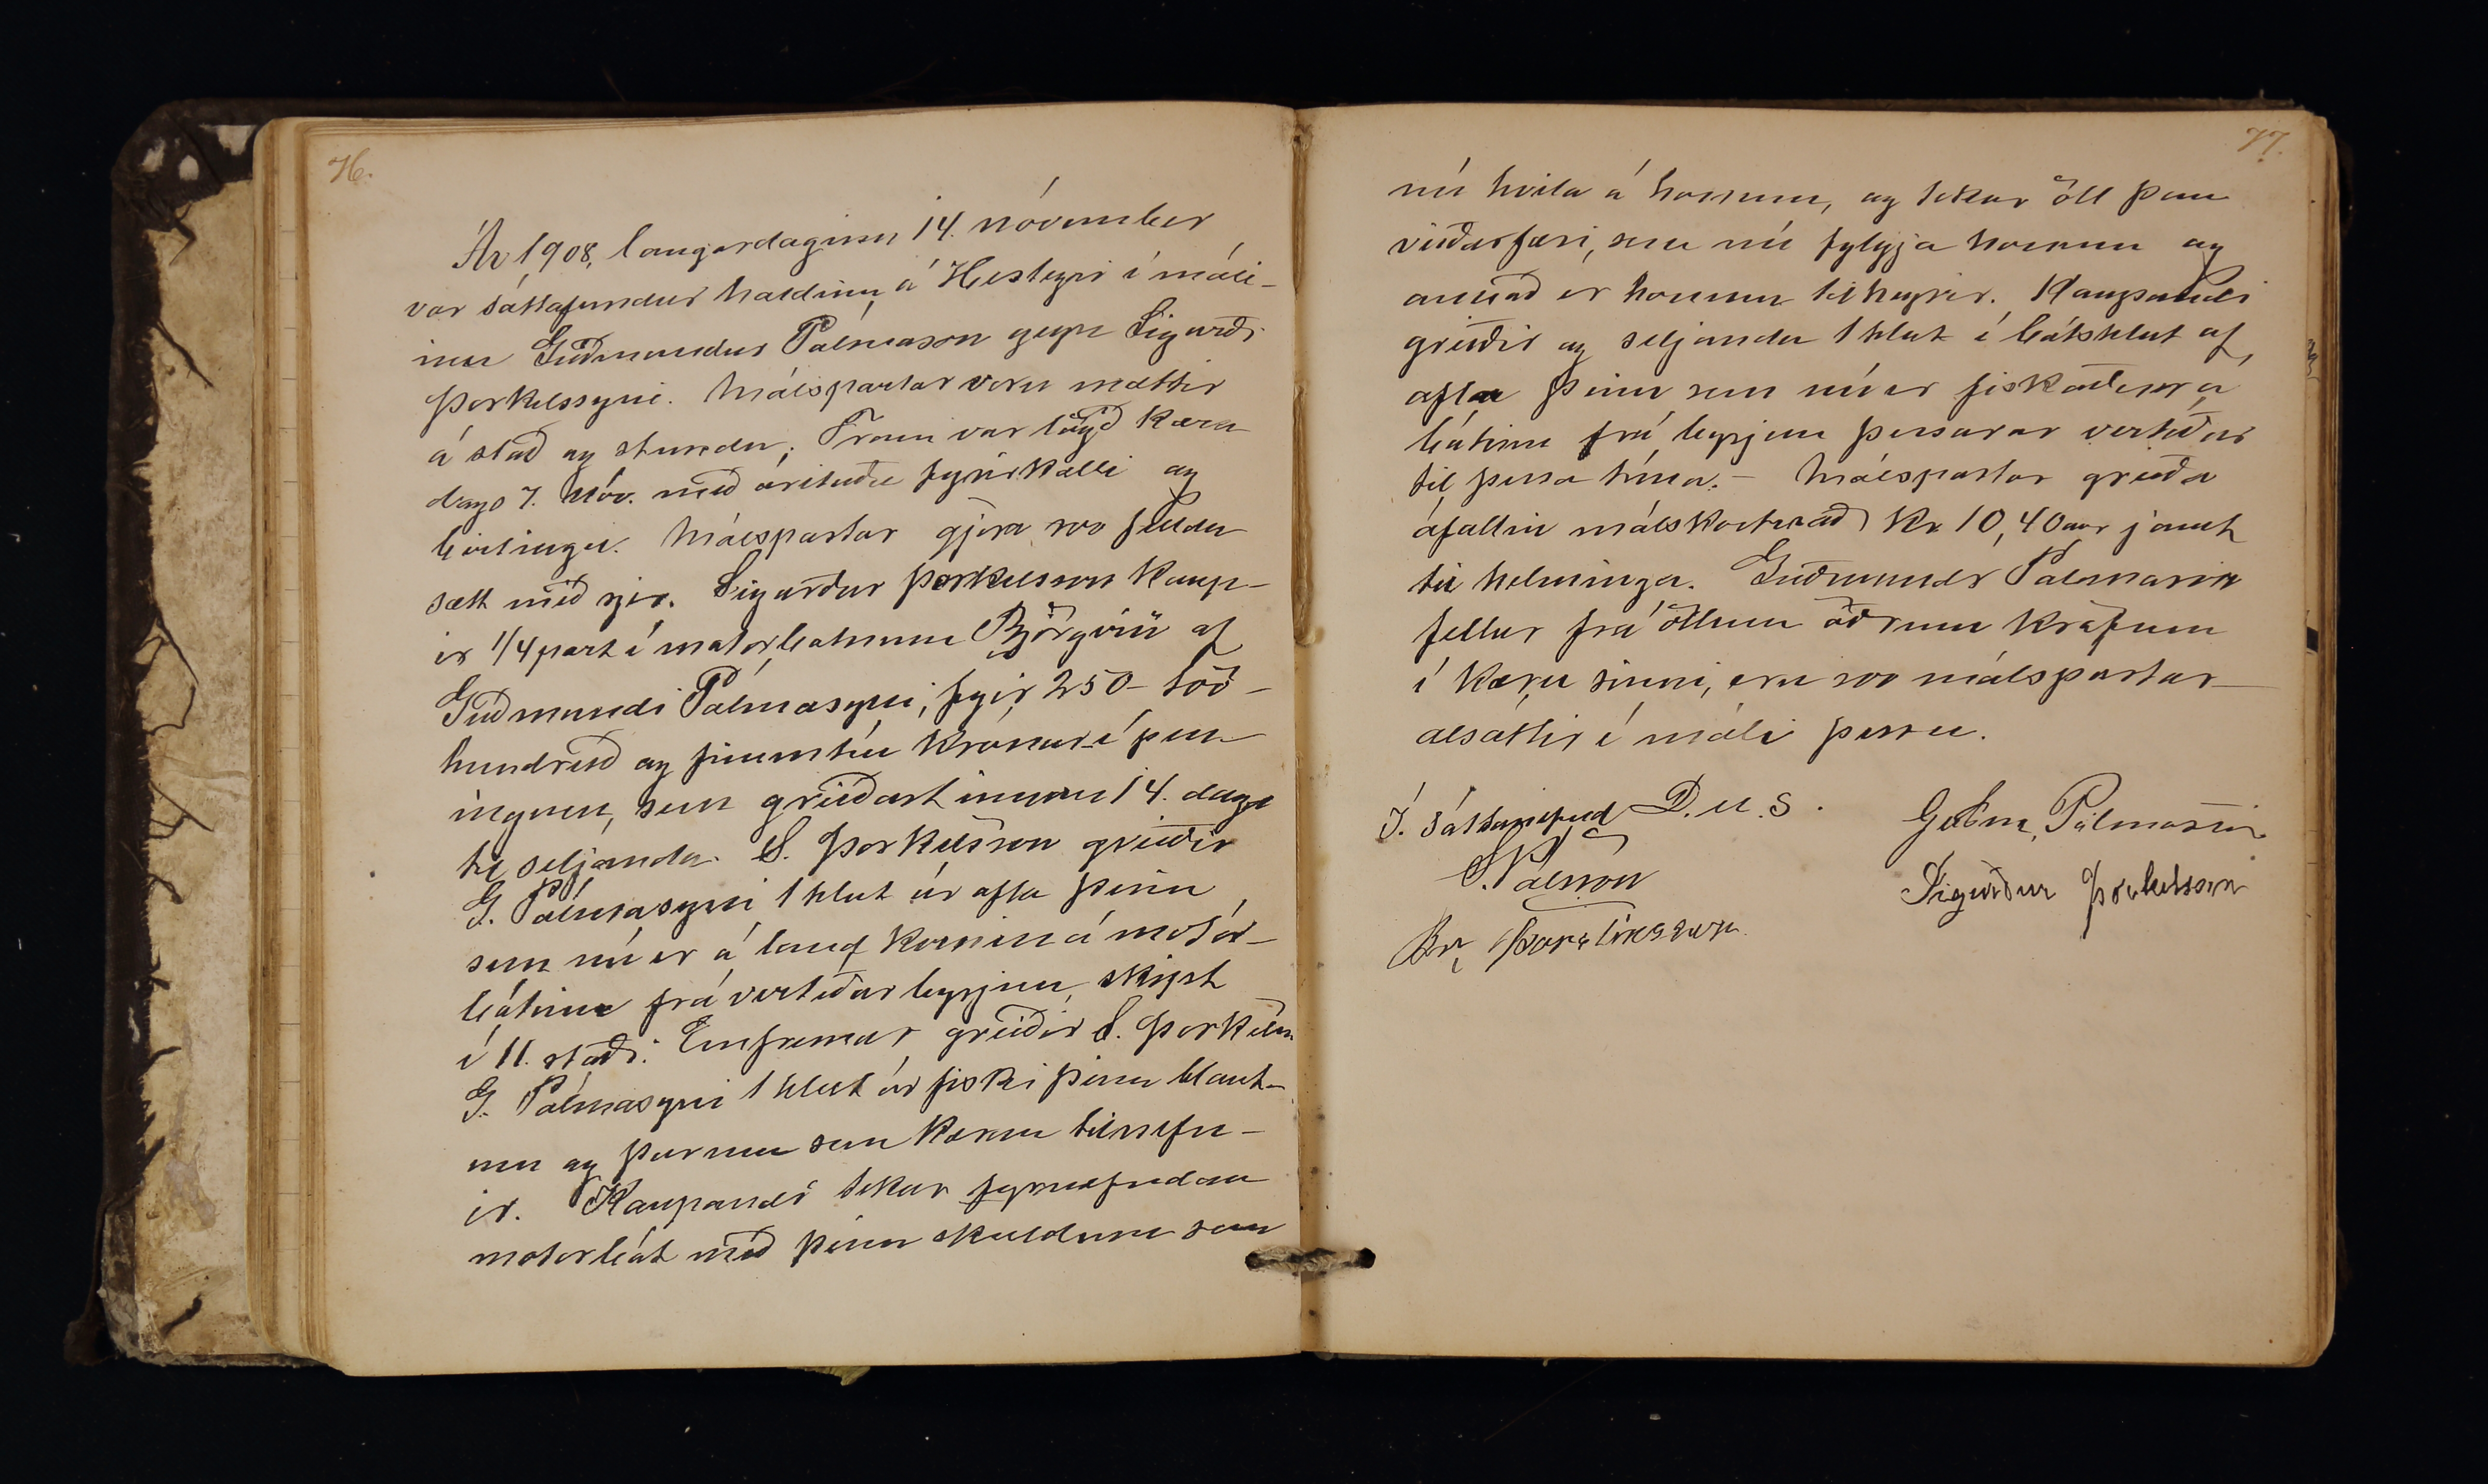 76.
Ár 1908, laugardaginn 14. nóvember
var sáttafundur haldinn á Hesteyri í máli-
inu Guðmundur Pálmason gegn Sigurði
Þorkelssyni. Málspartar voru mættir
á stað og stundu. Fram var lögð kæra
dags 7. Nóv. með árituðu fyrirkalli og
birtingu. Málspartar gjöra svo fellda
sætt með sjer. Sigurður Þorkelsson kaup-
ir 1/4 part í motorbátnum Björgvin af
Guðmundi Pálmasyni, fyrir 250 - tvö-
hundruð og fimmtíu krónur - í pen-
ingum, sem greiðast innan 14. daga
til seljanda. S. Þorkelsson greiðir
G. Pálmasyni 1 hlut úr afla þeim
sem nú er á land kominn á mótór-
bátinn frá vertíðar byrjun, skipt
í 11. staði. Ennfremur greiðir S. Þorkelss.
G. Pálmasyni 1 hlut úr fiski þeim blaut-
um og þurrum sem kæran tilnefn-
ir. Kaupandi tekur fyrnefndan
motorbát með þeim skuldum sem
77.
nú hvíla á honum, og tekur öll þau
veiðarfæri, sem nú fylgja honum og
annað er honum tilheyrir. Kaupandi
greiðir og seljanda 1 hlut í bátshlut af
afla þeim sem nú er fiskaður á
bátinn frá byrjun þessarar vertíðar
til þessa tíma. - Málspartar greiða
áfallin málskostnað kr 10,40 aur jamt
til helminga. Guðmundr Palmason
fellur frá öllum öðrum kröfum
í kæru sinni, eru svo málspartar
alsáttir í máli þessu.
Í. Sáttanefnd D.u.s. Guðm, Pálmason
S. Pálsson Sigurður Þorkelsson
Br, Þorsteinsson